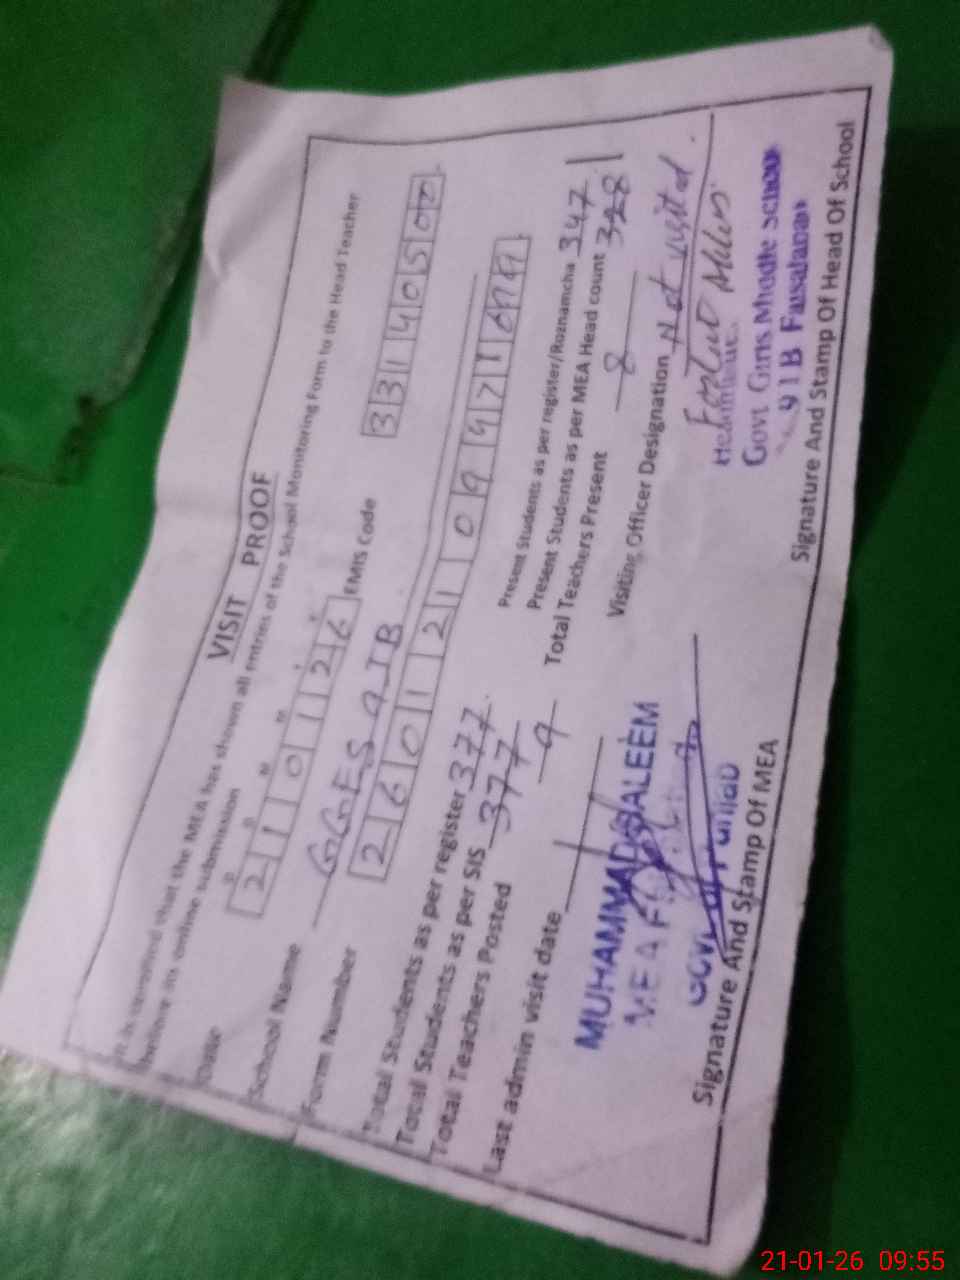 VISIT PROOF
It is certified that the MEA has shown all entries of the School Monitoring Form to the Head Teacher
before its online submission
Date D D M M Y Y
2 1 0 1 2 6
EMIS Code 3 3 1 4 0 5 0 0
School Name GGES 9 JB
Form Number 2 6 0 1 2 1 0 9 4 7
Total Students as per register 377
Present Students as per register/Roznamcha 347
Total Students as per SIS 377
Present Students as per MEA Head count 328
Total Teachers Posted 9
Total Teachers Present 8
Last admin visit date
Visiting Officer Designation Not visited.
MUHAMMAD SALEEM
MEA
Govt. of Punjab
Headmistress
Govt Girls Middle School
9 JB Faisalabad
Signature And Stamp Of MEA
Signature And Stamp Of Head Of School
21-01-26 09:55